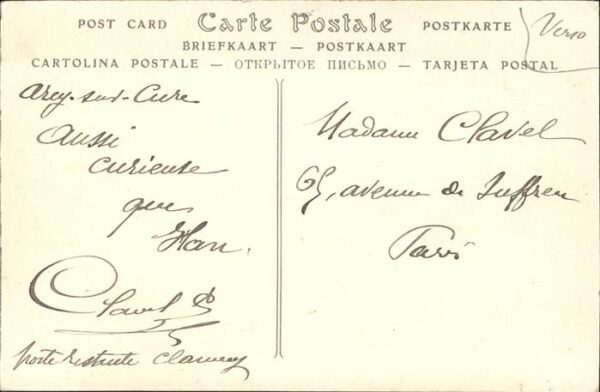 POST CARD Carte Postale POSTKARTE
BRIEFKAART — POSTKAART
CARTOLINA POSTALE — ОТКРЫТОЕ ПИСЬМО — TARJETA POSTAL
Verso
Arcy-sur-Cure
aussi
curieuse
que
Han.
Clavel
poste restante Clamecy
Madame Clavel
65, avenue de Suffren
Paris